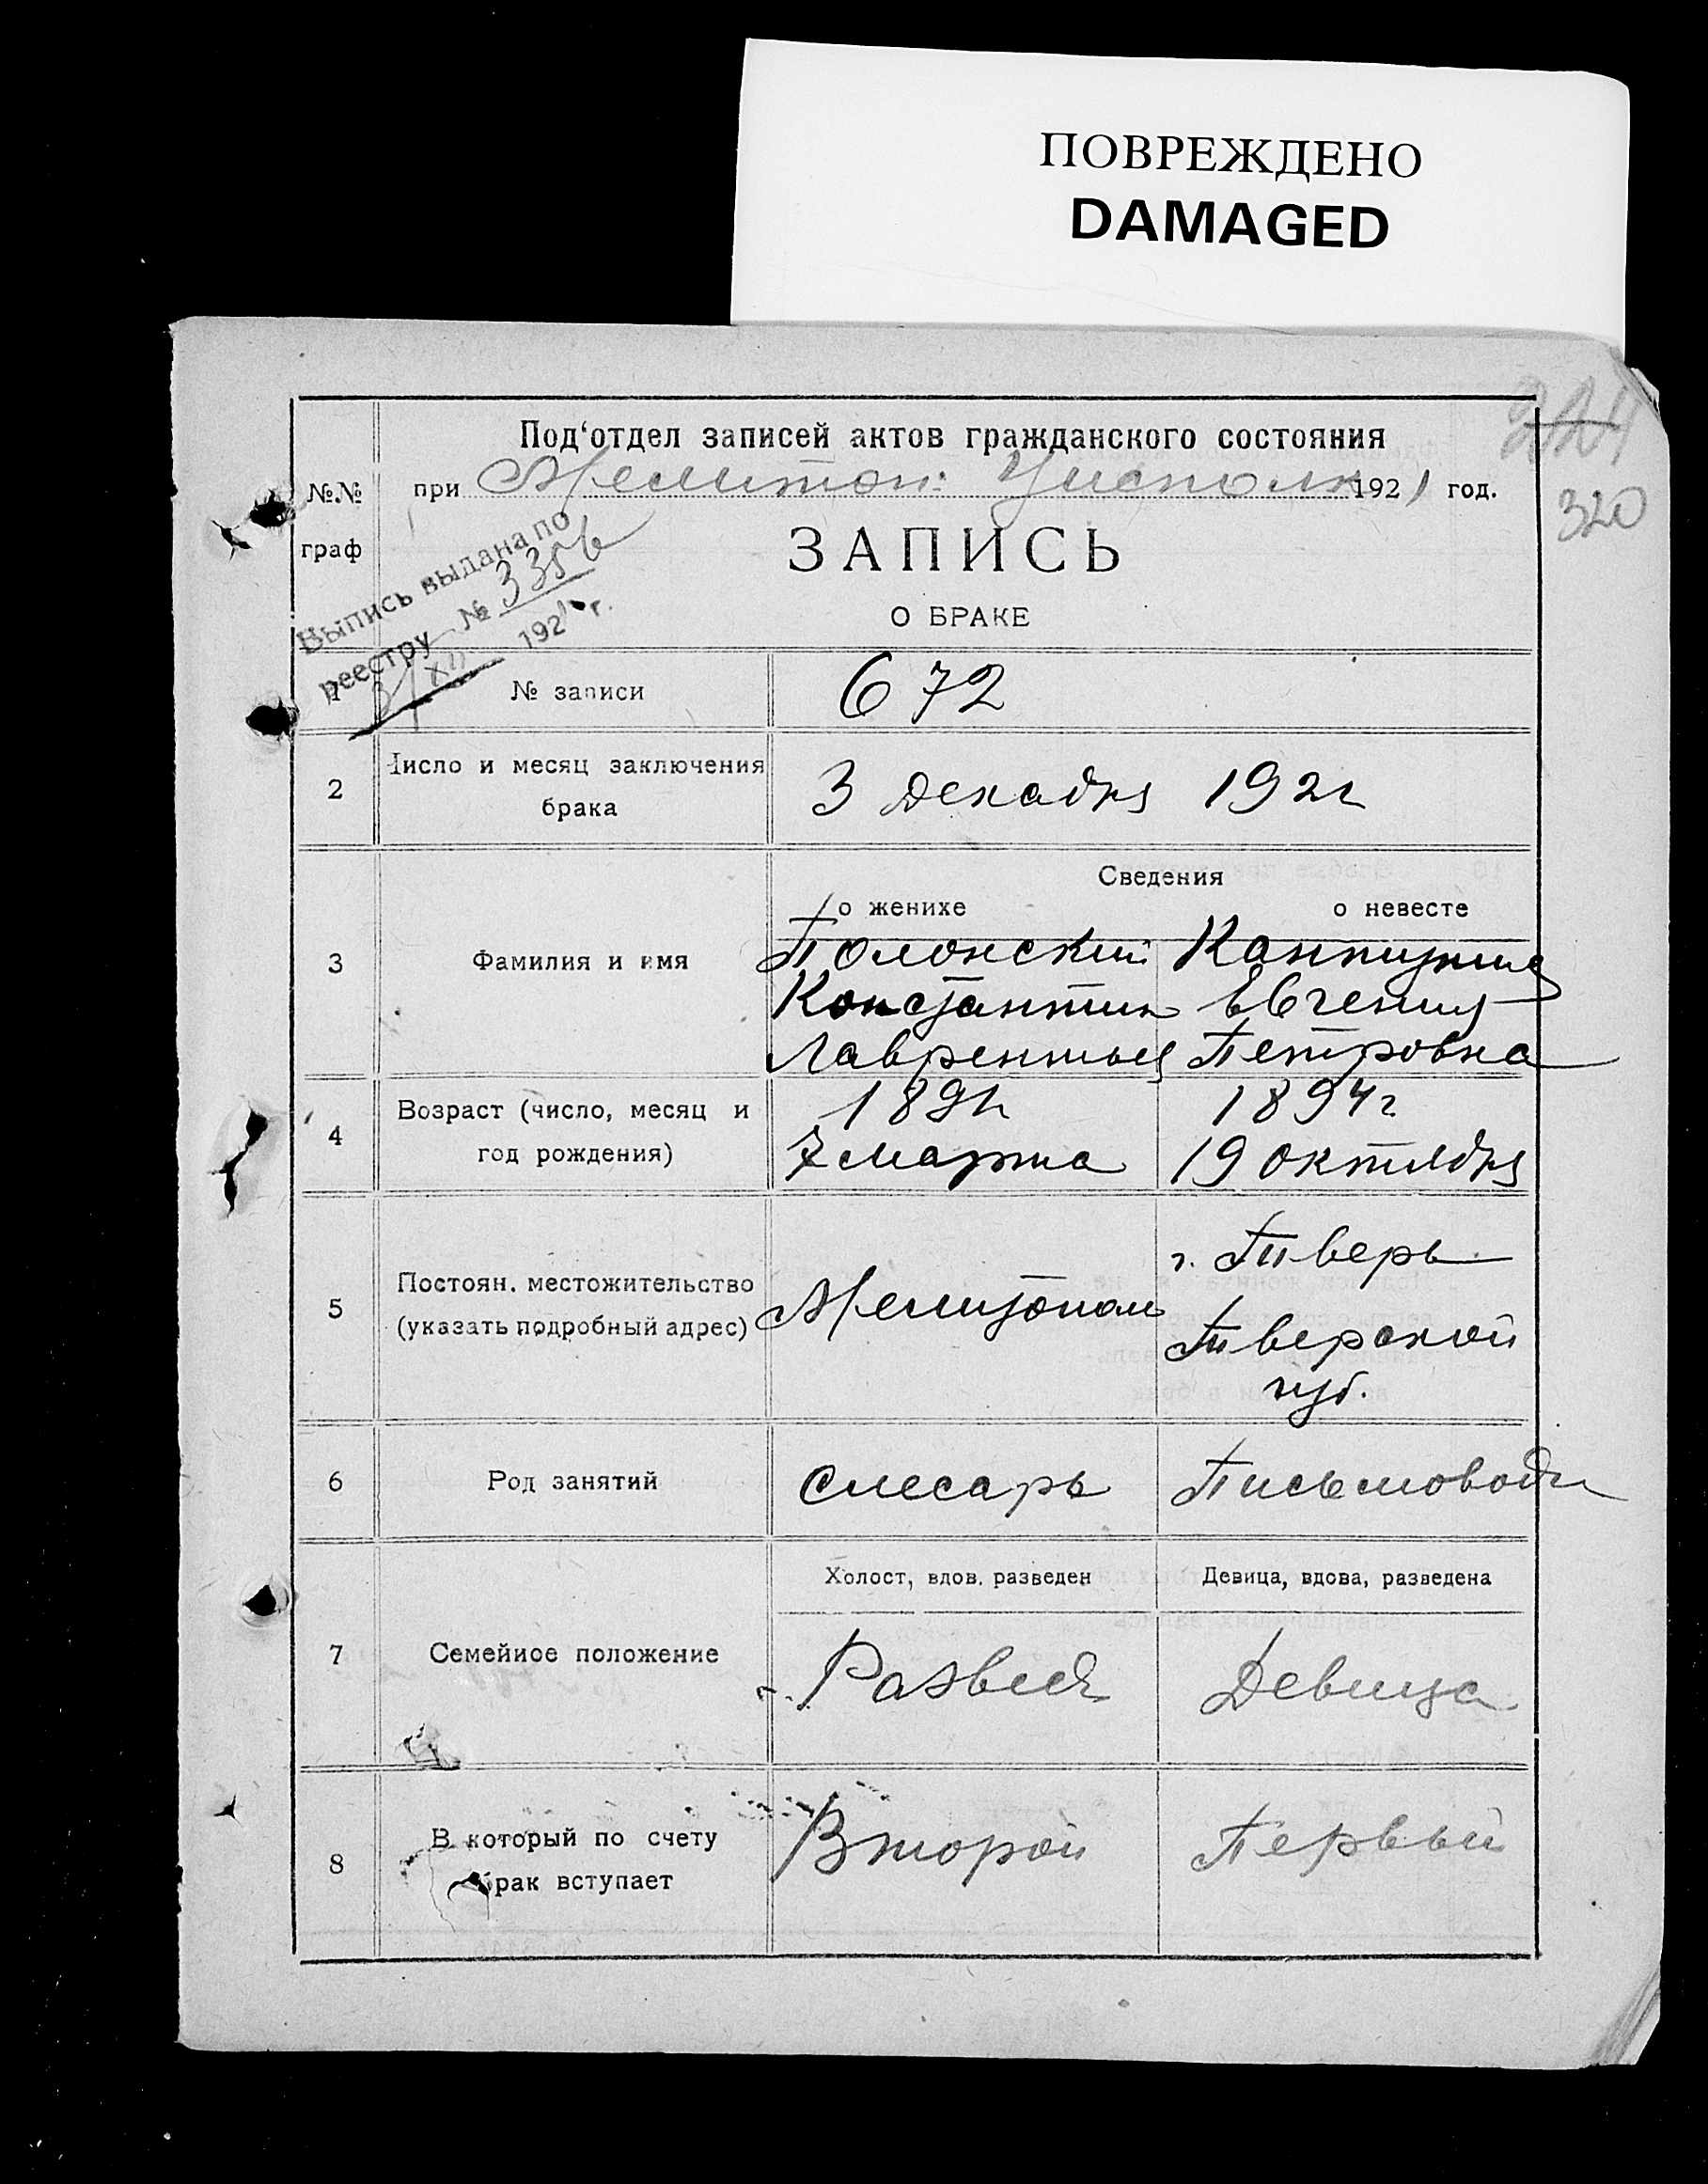 ПОВРЕЖДЕНО
DAMAGED
224
320
№.№ граф
Под‘отдел записей актов гражданского состояния
при Мелитоп. Уисполк 1921 год.
ЗАПИСЬ
О БРАКЕ
Выпись выдана по
реестру № 3356
3/XII 1921 г.
1 № записи 672
2 Число и месяц заключения брака 3 декабря 1921
Сведения
о женихе о невесте
3 Фамилия и имя
Полонский
Константин Евгения
Лаврентьев Петровна
4 Возраст (число, месяц и год рождения)
1894г
7 марта 19 октября
5 Постоян. местожительство (указать подробный адрес)
Мелитополь г. Тверь
Тверской
губ.
6 Род занятий слесарь Письмовод
Холост, вдов. разведен Девица, вдова, разведена
7 Семейное положение Развед Девица
8 В который по счету брак вступает Второй Первый